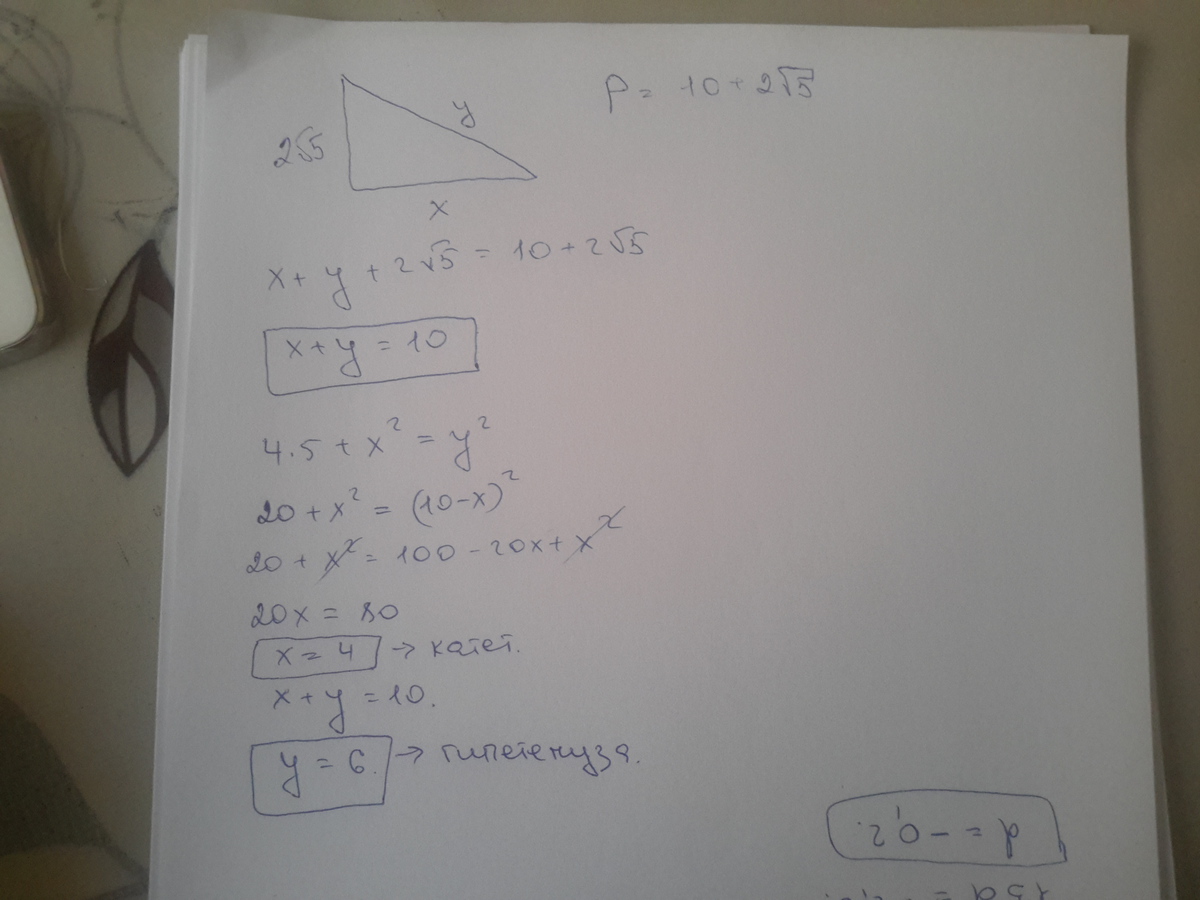 P = 10 + 2√5
2√5
y
x
x + y + 2√5 = 10 + 2√5
x + y = 10
4·5 + x² = y²
20 + x² = (10 - x)²
20 + x² = 100 - 20x + x²
20x = 80
x = 4 → катет.
x + y = 10.
y = 6. → гипетенуза.
d = -0,2.